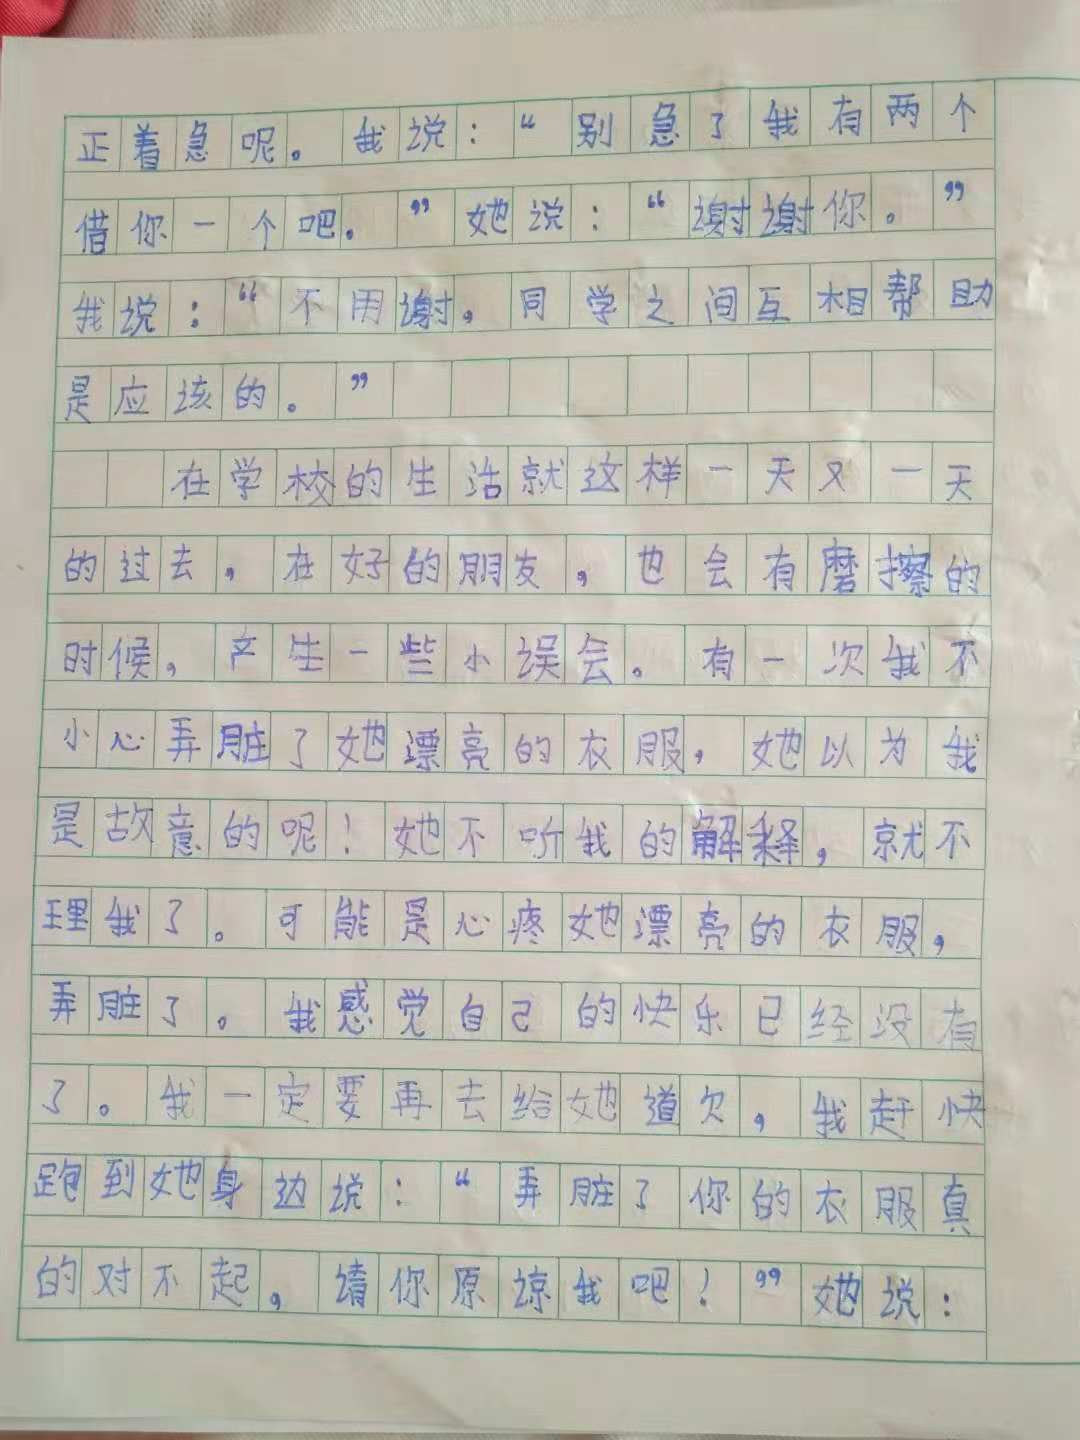 正着急呢。我说：“别急了我有两个
借你一个吧。”她说：“谢谢你。”
我说：“不用谢，同学之间互相帮助
是应该的。”
在学校的生活就这样一天又一天
的过去，在好的朋友，也会有磨擦的
时候，产生一些小误会。有一次我不
小心弄脏了她漂亮的衣服，她以为我
是故意的呢！她不听我的解释，就不
理我了。可能是心疼她漂亮的衣服，
弄脏了。我感觉自己的快乐已经没有
了。我一定要再去给她道欠，我赶快
跑到她身边说：“弄脏了你的衣服真
的对不起，请你原谅我吧！”她说：